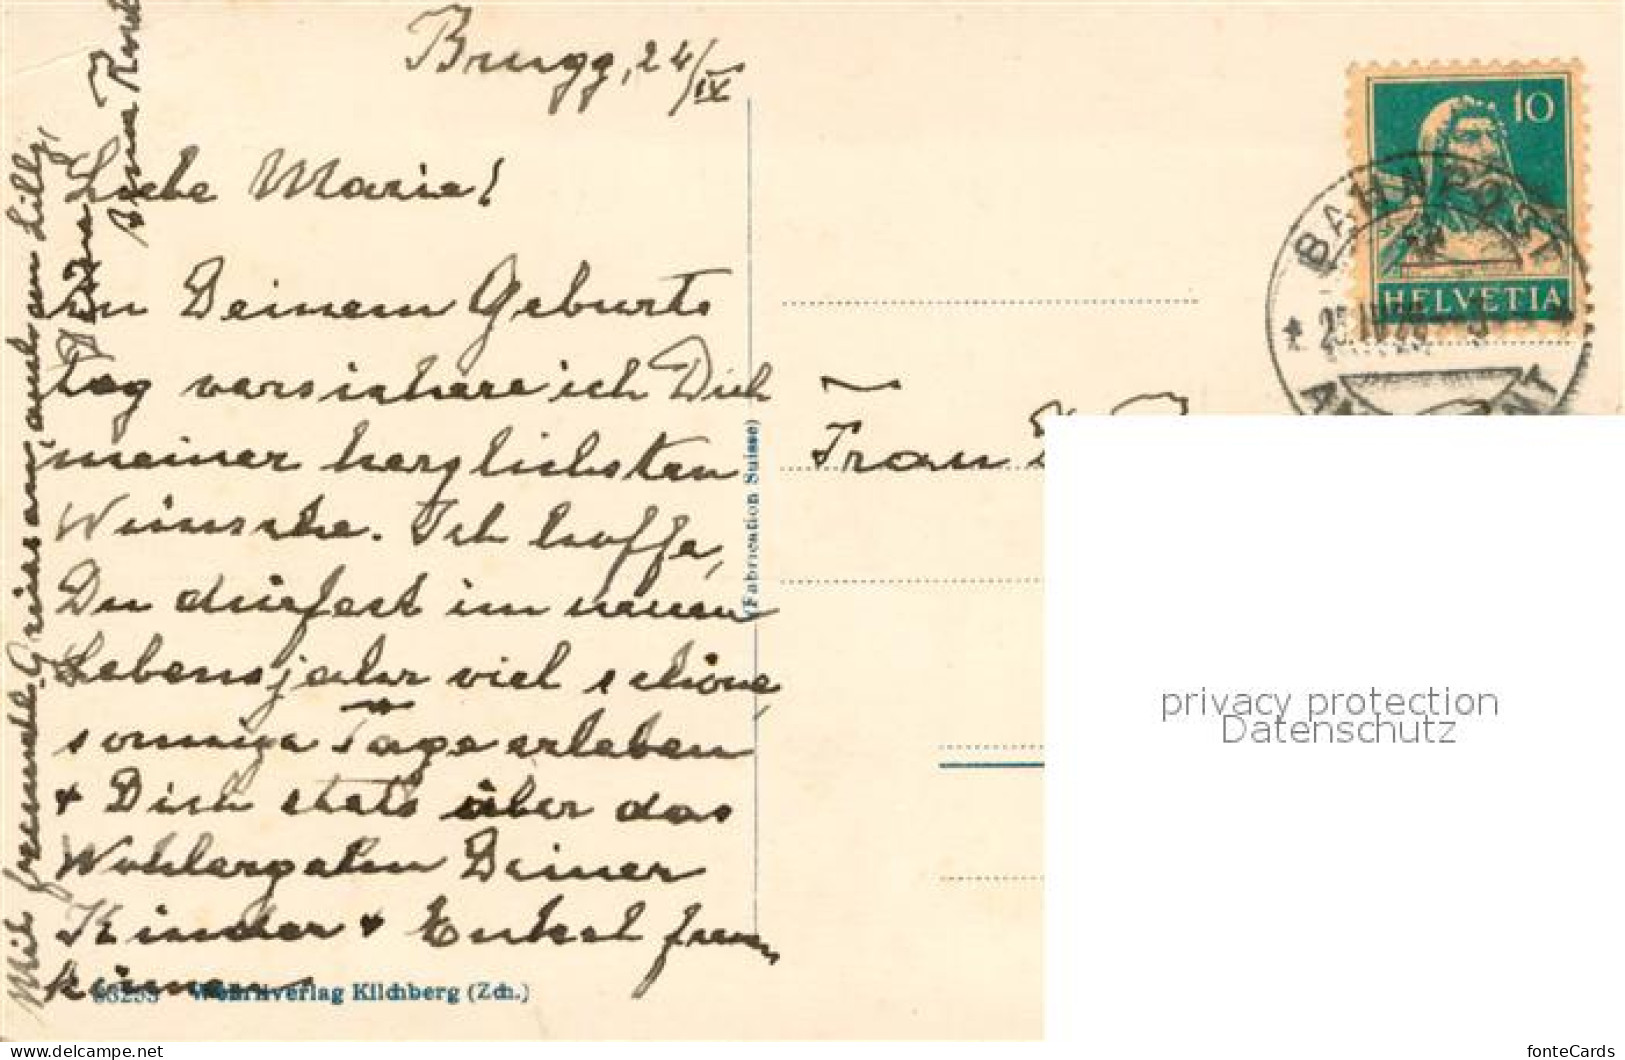 Brugg, 24/IX
Liebe Marie!
Zu Deinem Geburts
tag versichere ich Dich
meiner herzlichsten
Wünsche. Ich hoffe,
Du dürfest im neuen
Lebensjahr viel schöne,
sonnige Tage erleben
+ Dich stets über das
Wohlergehn Deiner
Kinder + Enkel freuen
können
Mit freundl. Grüssen, auch an Lilly,
Deine
Anna
(Fabrication Suisse)
Wehrliverlag Kilchberg (Zch.)
10
HELVETIA
BAHNPOST
AMBULANT
Frau
privacy protection
Datenschutz
fonteCards